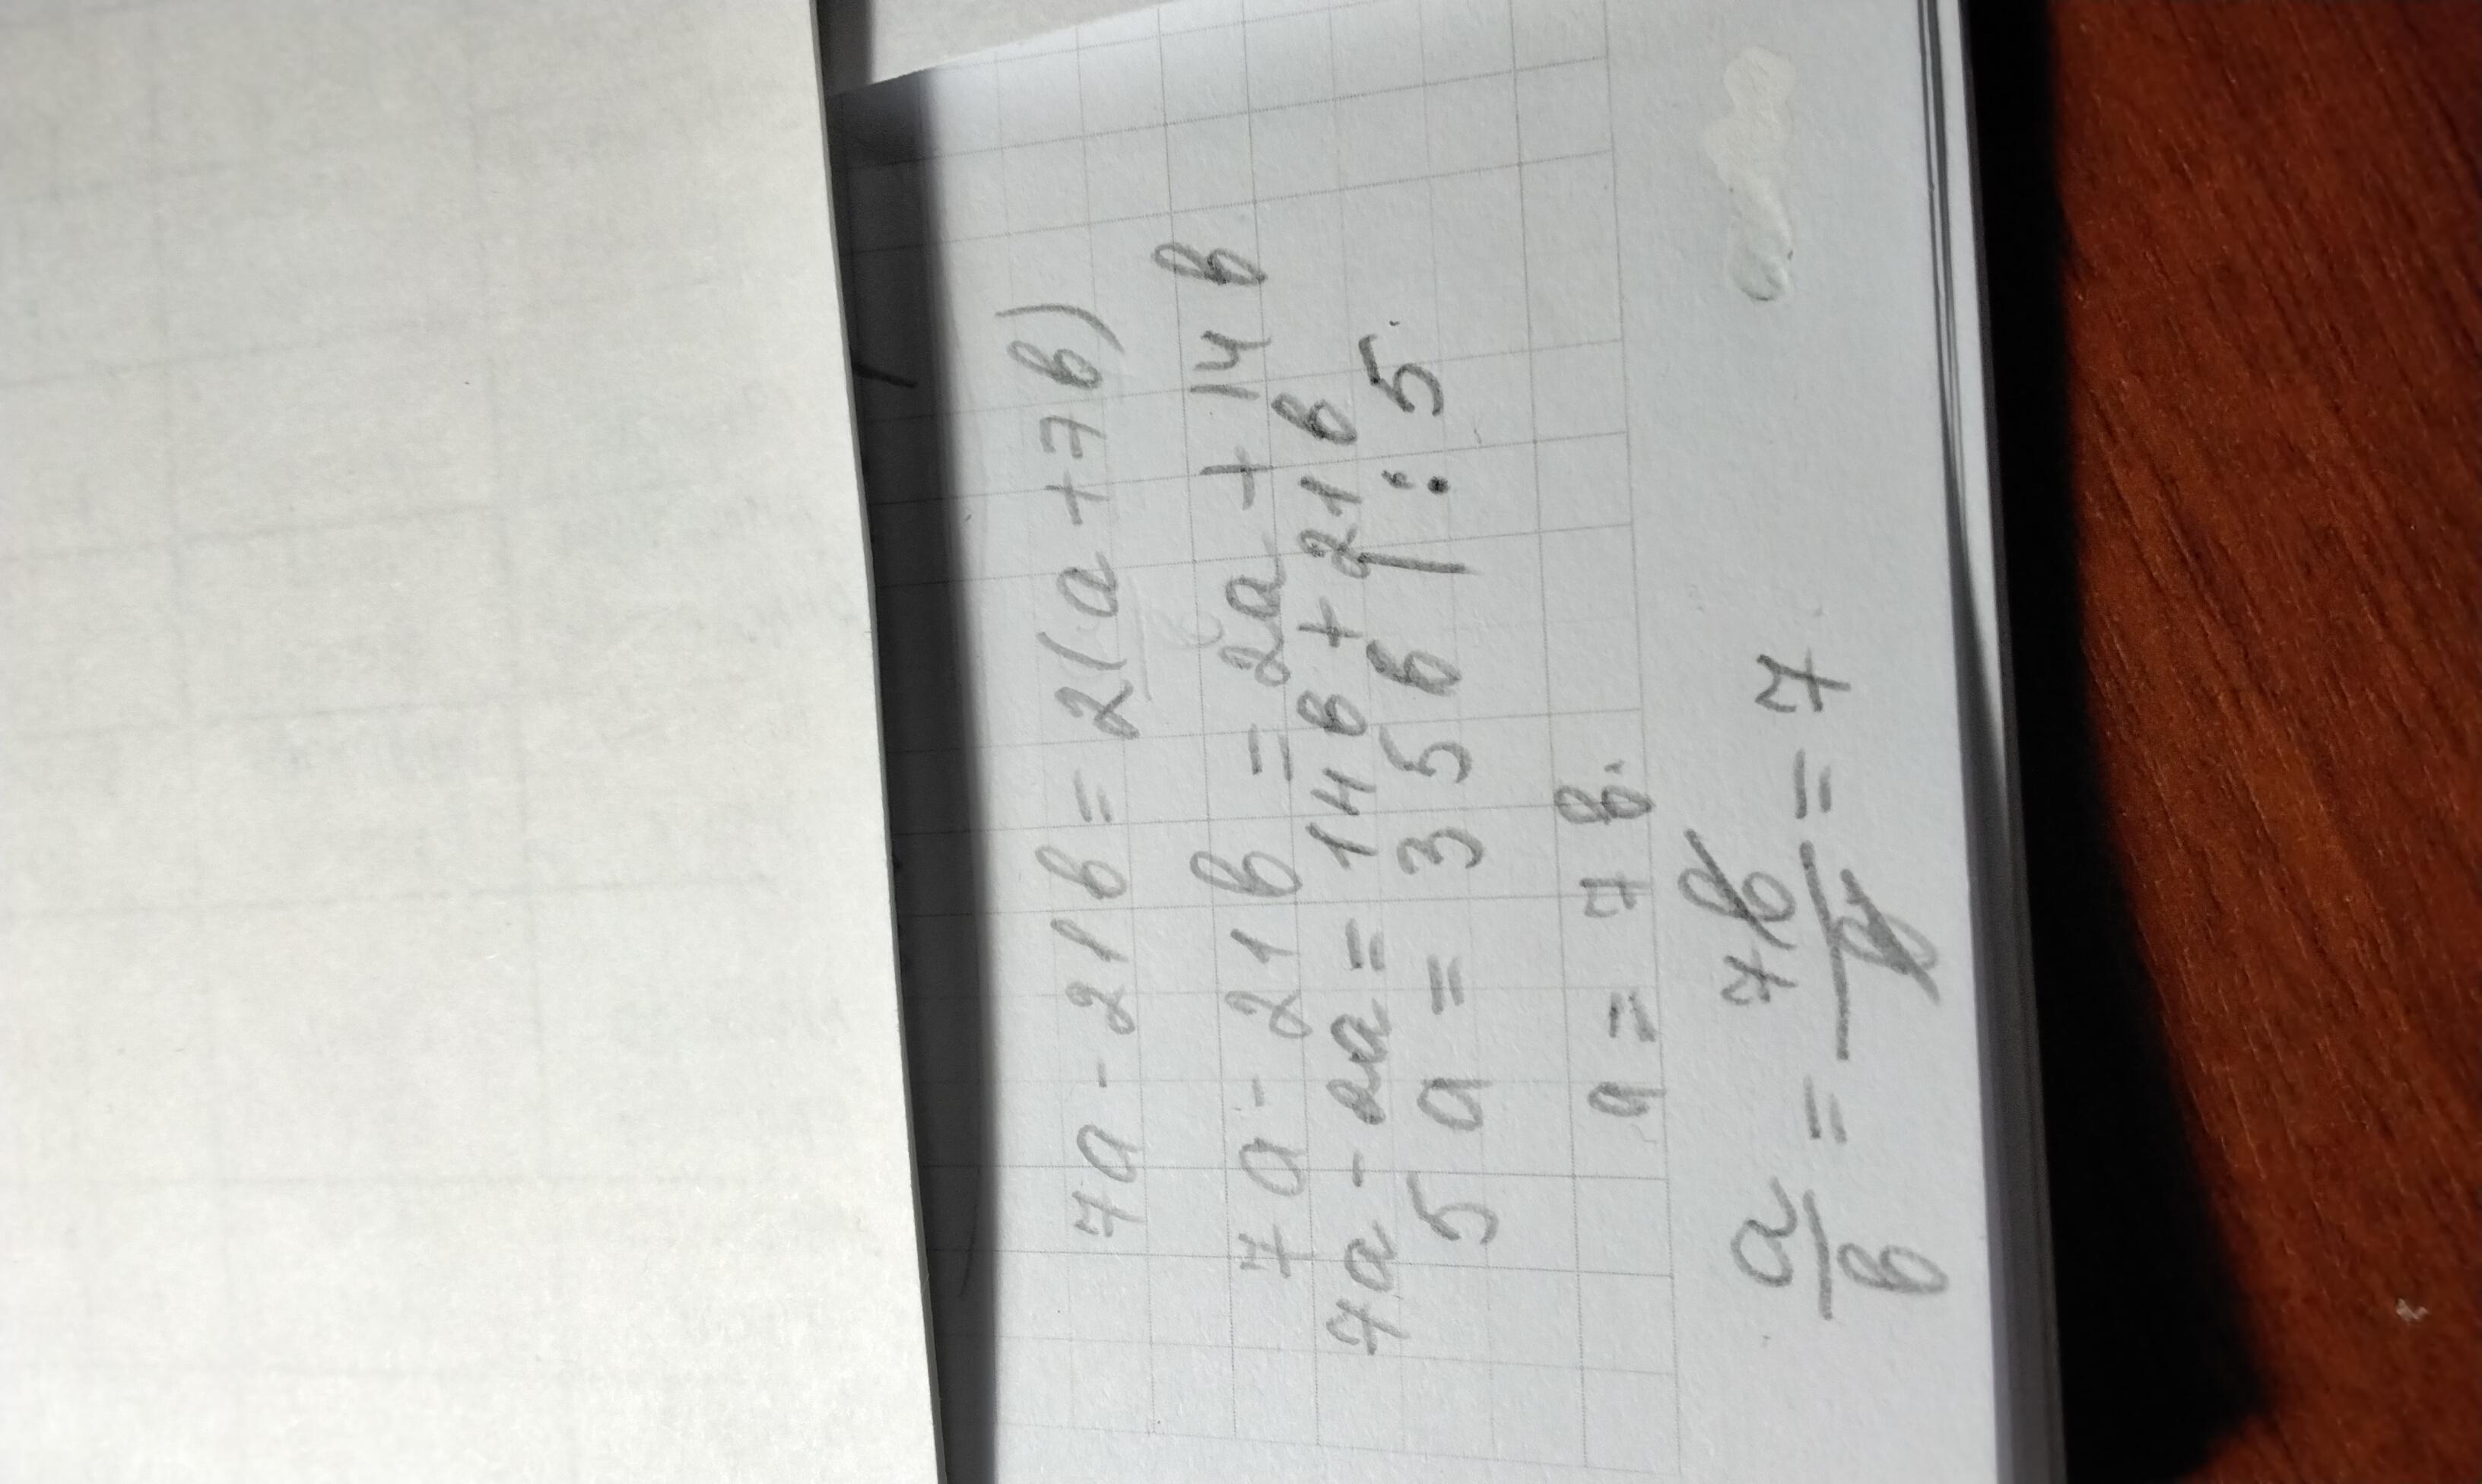 7a - 21b = 2(a + 7b)
7a - 21b = 2a + 14b
7a - 2a = 14b + 21b
5a = 35b | : 5
a = 7b.
a/b = 7b/b = 7